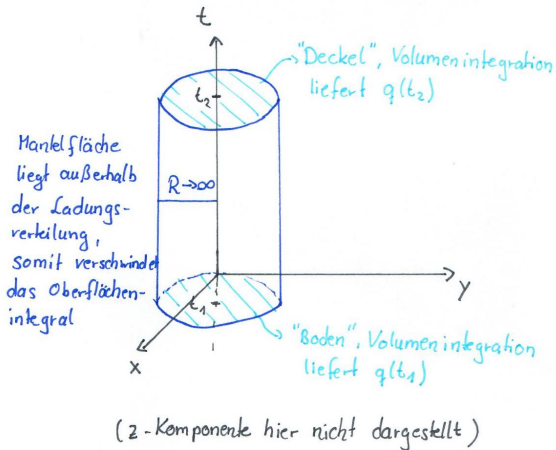 t
"Deckel", Volumenintegration
liefert q(t₂)
t₂
Mantelfläche
liegt außerhalb
der Ladungs-
verteilung,
somit verschwindet
das Oberflächen-
integral
R→∞
y
t₁
x
"Boden", Volumenintegration
liefert q(t₁)
(z-Komponente hier nicht dargestellt)